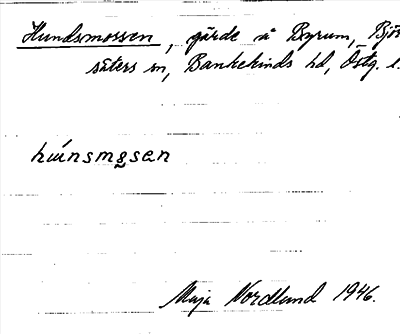 Hundsmossen, gärde å Byrum, Bjö
säters sn, Bankekinds hd, Östg. l.
húnsmɡsen
Maja Nordlund 1946.